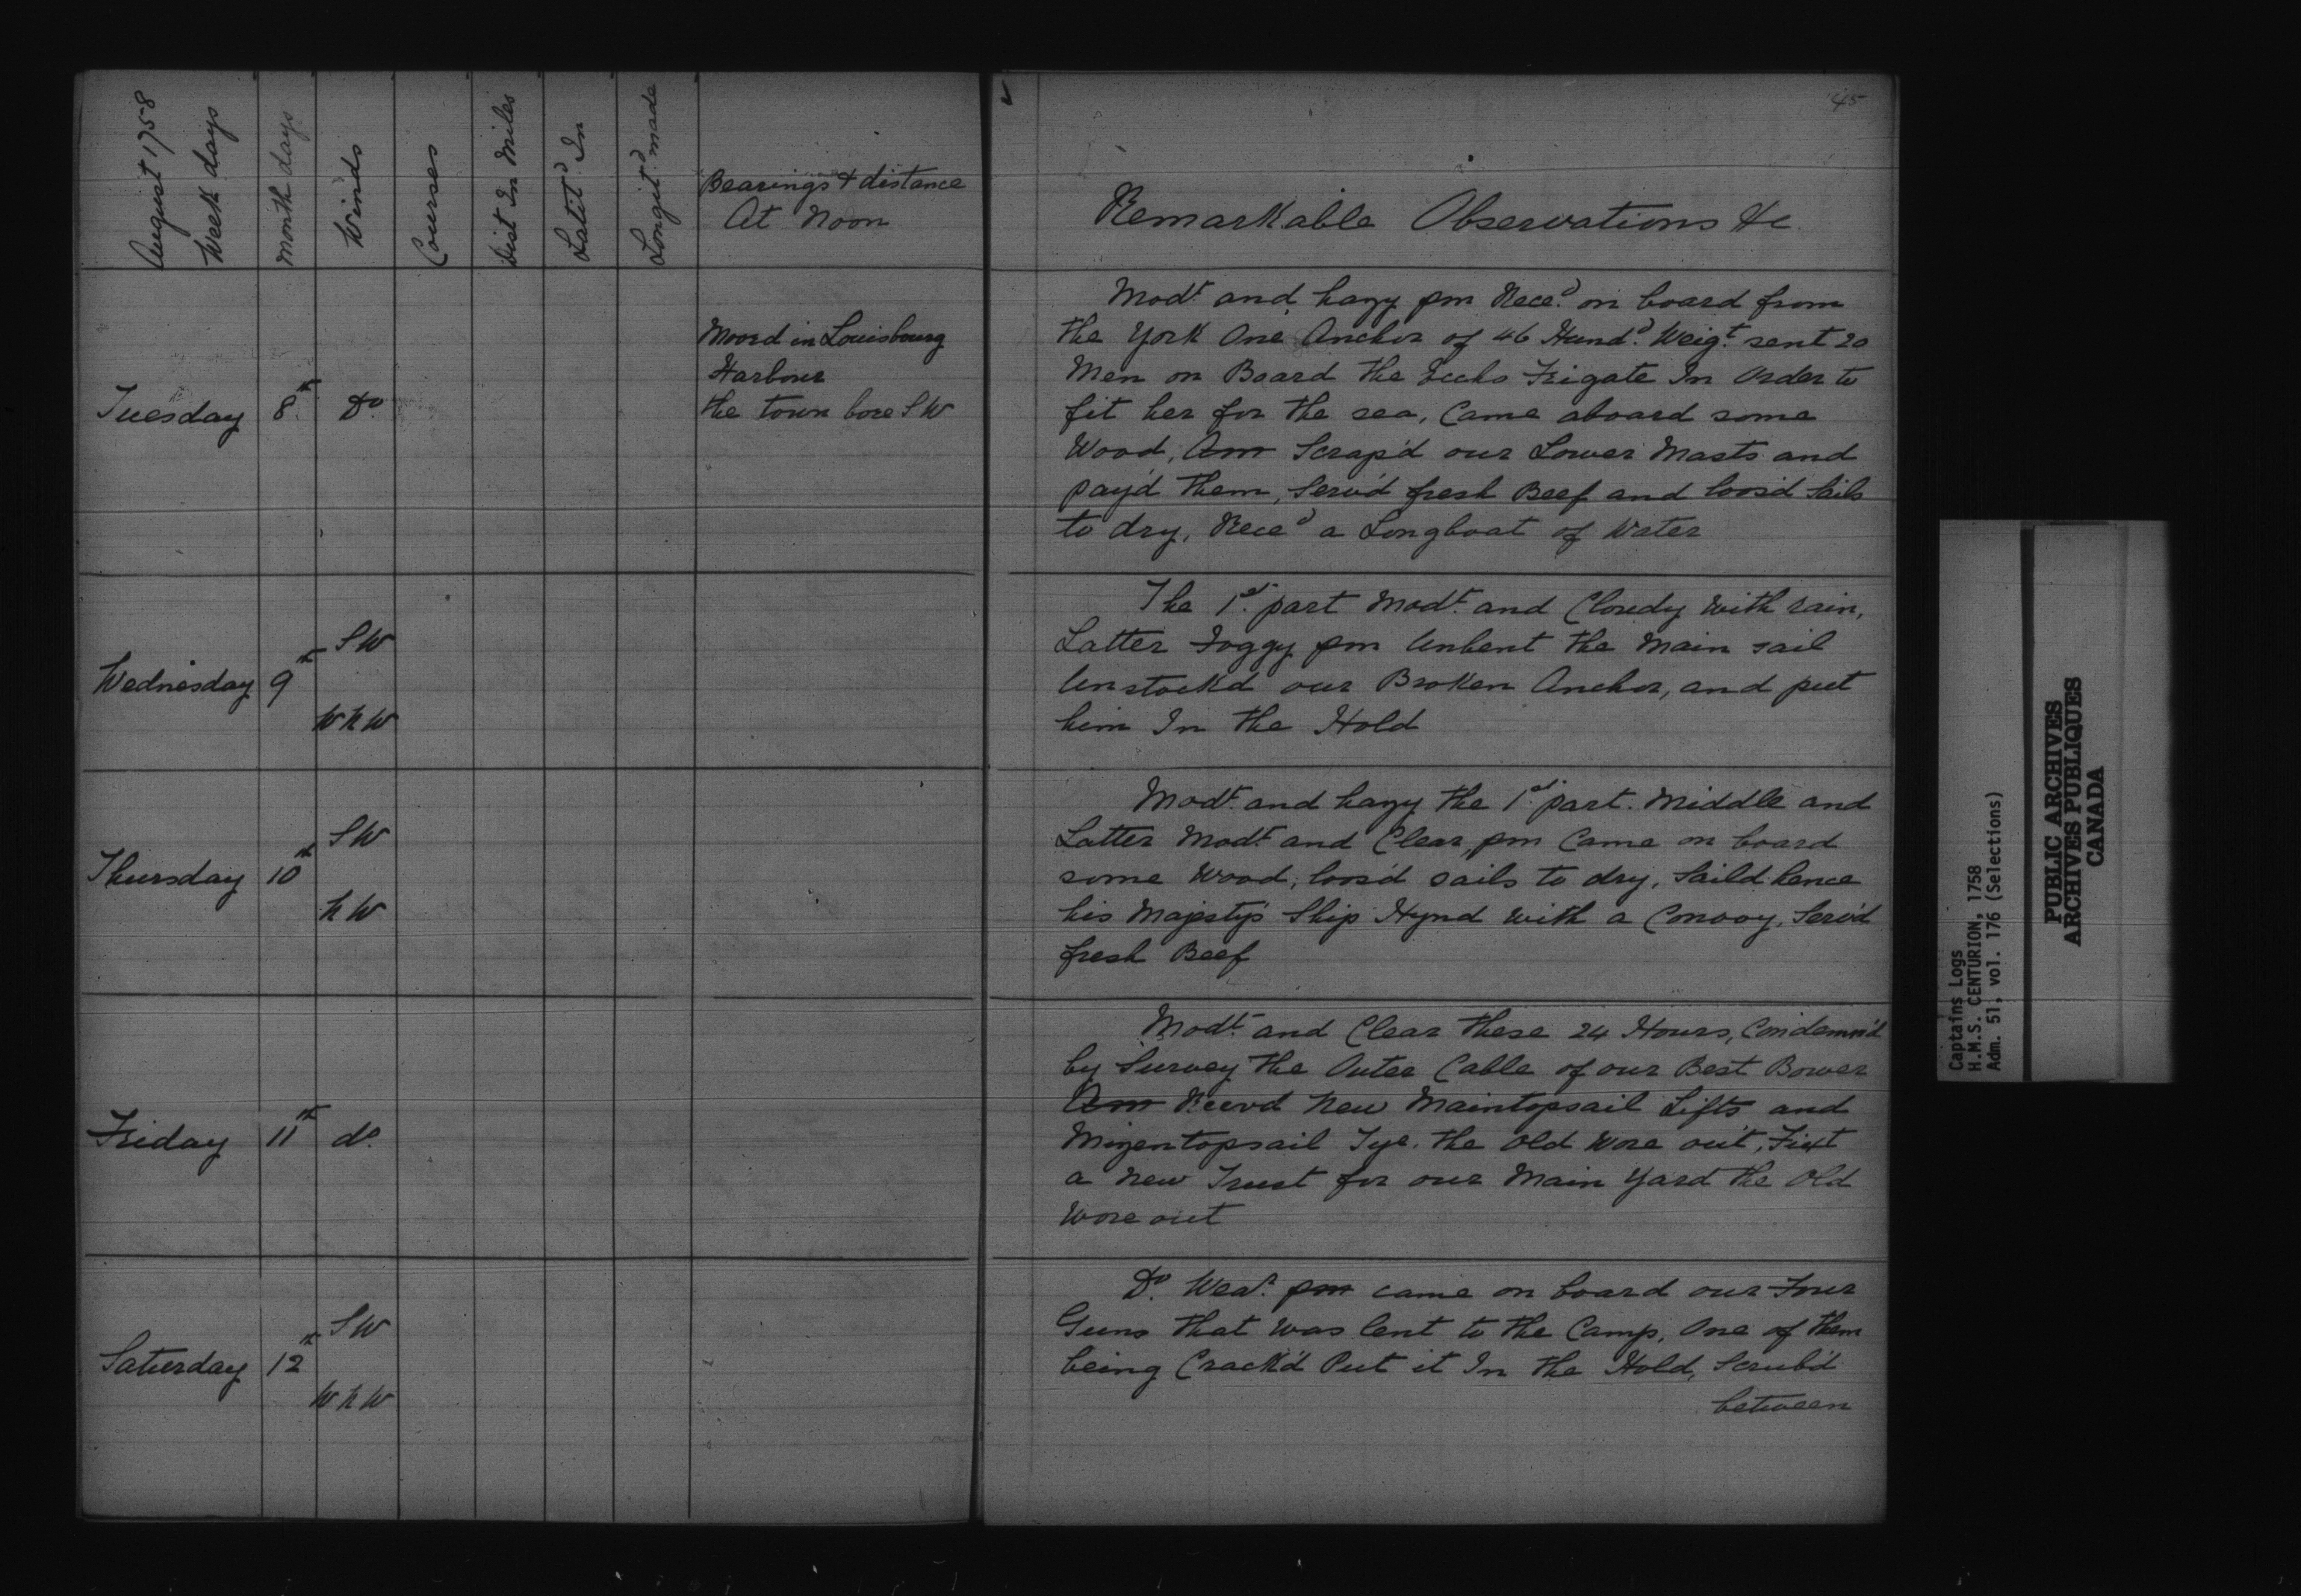 August 1758
Week days
Month days
Winds
Courses
Dist In Miles
Latitd In
Longitd made
Bearings & distance
At Noon
45
Remarkable Observations &c
Tuesday 8th Do
Moord in Louisbourg
Harbour
the town bore SW
Modt and hazy pm Reced on board from
the York One Anchor of 46 Hundd Weigt sent 20
Men on Board the Eccho Frigate In Order to
fit her for the sea, Came aboard some
Wood, Am Scrap'd our Lower Masts and
pay'd them, Serv'd fresh Beef and loos'd Sails
to dry, Reced a Longboat of Water
Wednesday 9th SW
WNW
The 1st part Modt and Cloudy with rain,
Latter Foggy pm Unbent the Main sail
Unstock'd our Broken Anchor, and put
him In the Hold
Thursday 10th SW
NW
Modt and hazy the 1st part. Middle and
Latter Modt and Clear, pm Came on board
some Wood, loos'd sails to dry, Saild hence
his Majesty's Ship Hynd with a Convoy, Serv'd
fresh Beef
Friday 11th do
Modt and Clear these 24 Hours, Condemn'd
by Survey the Outer Cable of our Best Bower
Am Reevd New Maintopsail Lifts and
Mizentopsail Tye. the Old Wore out, Fixt
a New Trust for our Main Yard the Old
Wore out
Saturday 12th SW
WNW
Do Wear pm came on board our Four
Guns that was lent to the Camp, One of them
being Crack'd Put it In the Hold, Scrub'd
between
Captains Logs
H.M.S. CENTURION, 1758
Adm. 51, vol. 176 (Selections)
PUBLIC ARCHIVES
ARCHIVES PUBLIQUES
CANADA